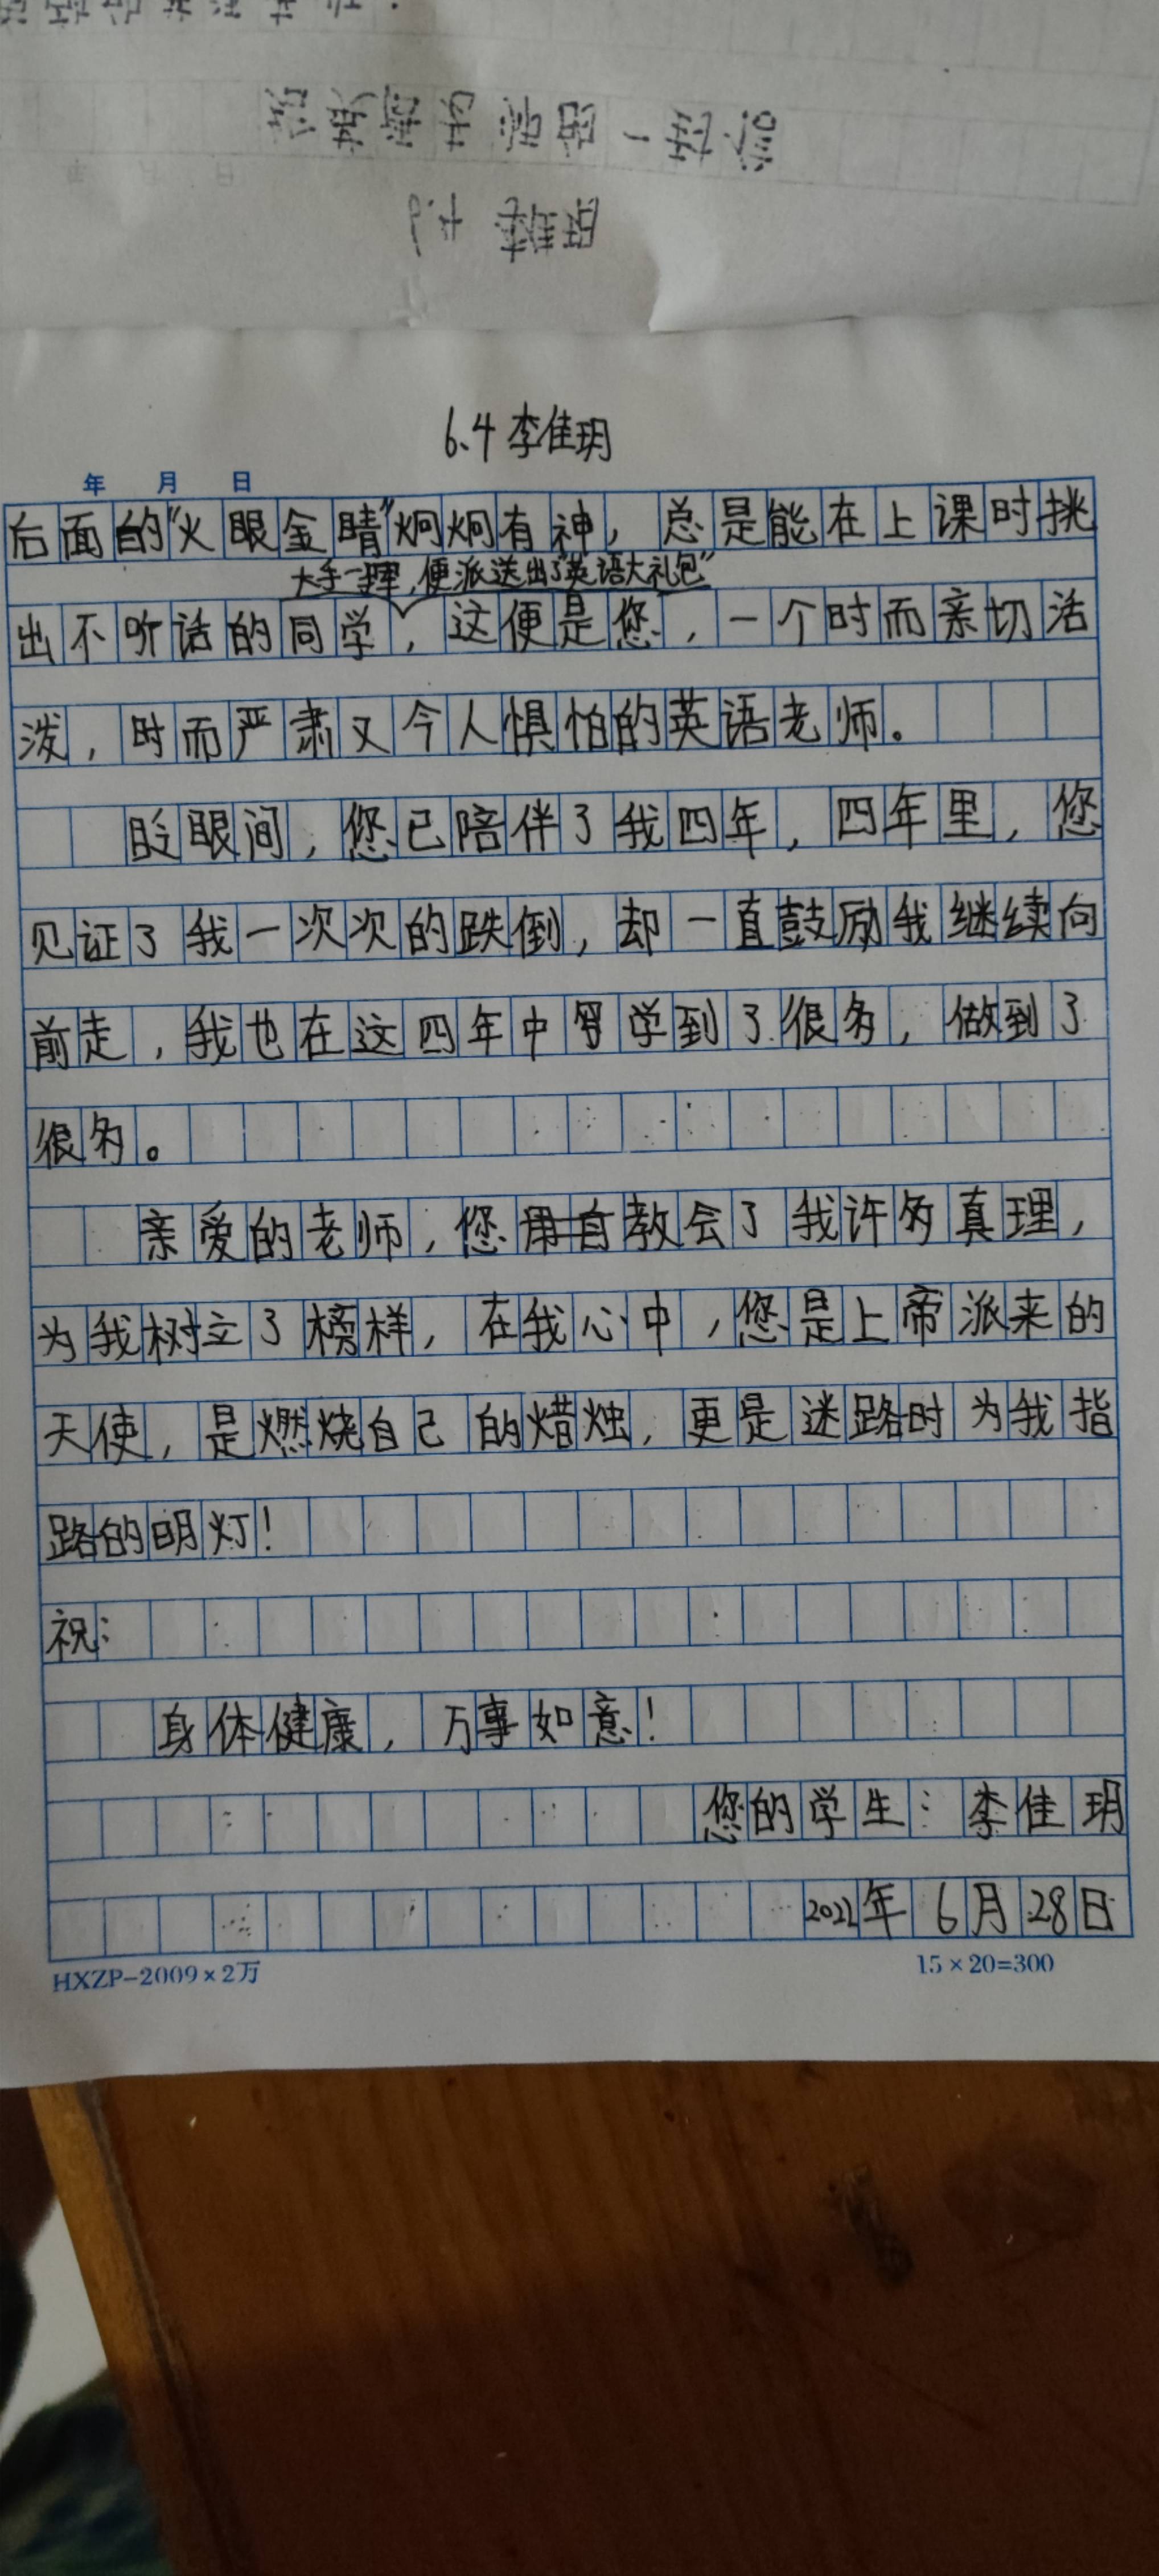 6.4 李佳玥
年 月 日
后面的“火眼金睛”炯炯有神，总是能在上课时挑
大手一挥，便派送出了“英语大礼包”
出不听话的同学，这便是您，一个时而亲切活
泼，时而严肃又今人惧怕的英语老师。
眨眼间，您已陪伴了我四年，四年里，您
见证了我一次次的跌倒，却一直鼓励我继续向
前走，我也在这四年中学到了很多，做到了
很多。
亲爱的老师，您教会了我许多真理，
为我树立了榜样，在我心中，您是上帝派来的
天使，是燃烧自己的蜡烛，更是迷路时为我指
路的明灯！
祝：
身体健康，万事如意！
您的学生：李佳玥
年6月28日
HXZP-2009×2万
15×20=300